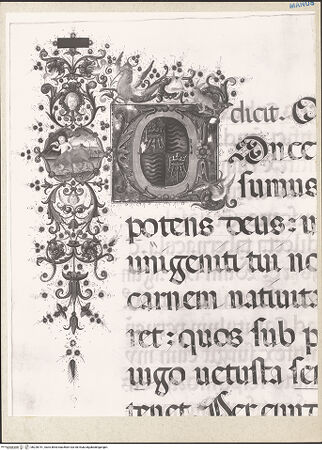 MANUS
dicit. O
Once
sumus
potens deus: u
unigeniti tui no
carnem nativita
ret: quos sub p
iugo vetusta ser
tenet. Per eund